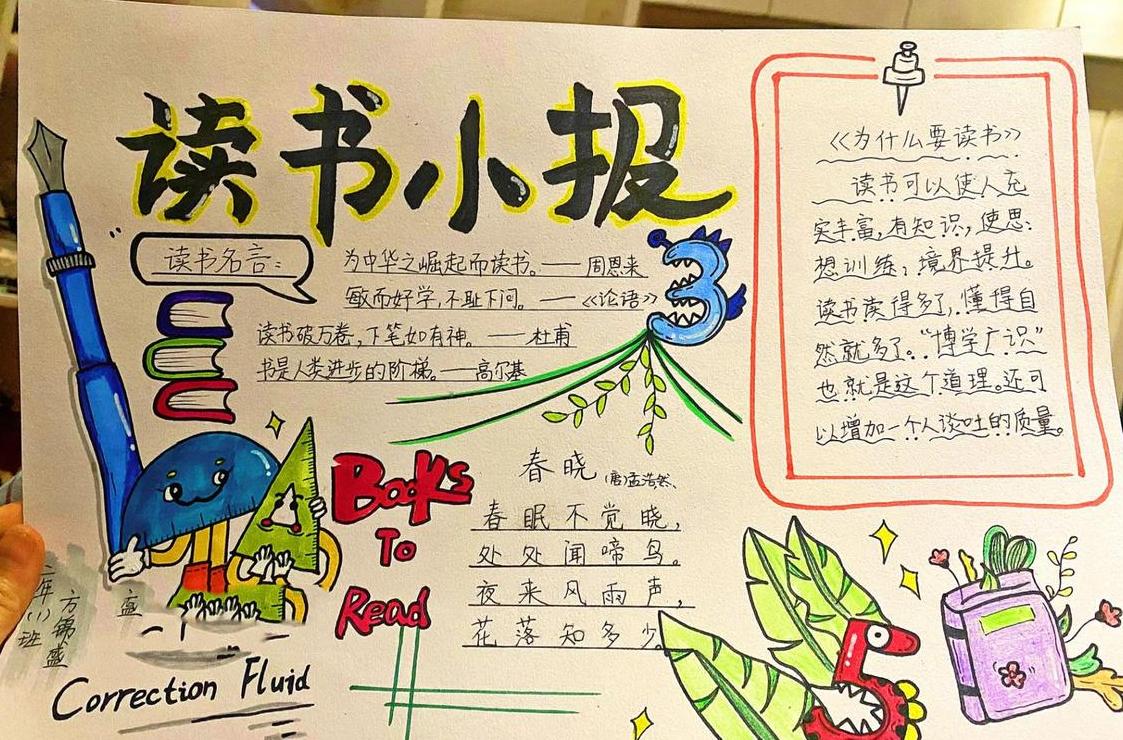 读书小报
读书名言:
为中华之崛起而读书。——周恩来
敏而好学,不耻下问。——《论语》
读书破万卷,下笔如有神。——杜甫
书是人类进步的阶梯。——高尔基
3
《为什么要读书》
读书可以使人充
实丰富,有知识,使思
想训练,境界提升。
读书读得多了,懂得自
然就多了。“博学广识”
也就是这个道理。还可
以增加一个人谈吐的质量。
Books
To
Read
春晓 (唐)孟浩然
春眠不觉晓,
处处闻啼鸟。
夜来风雨声,
花落知多少。
5
二年(1)班
方锦盛
盛
Correction Fluid